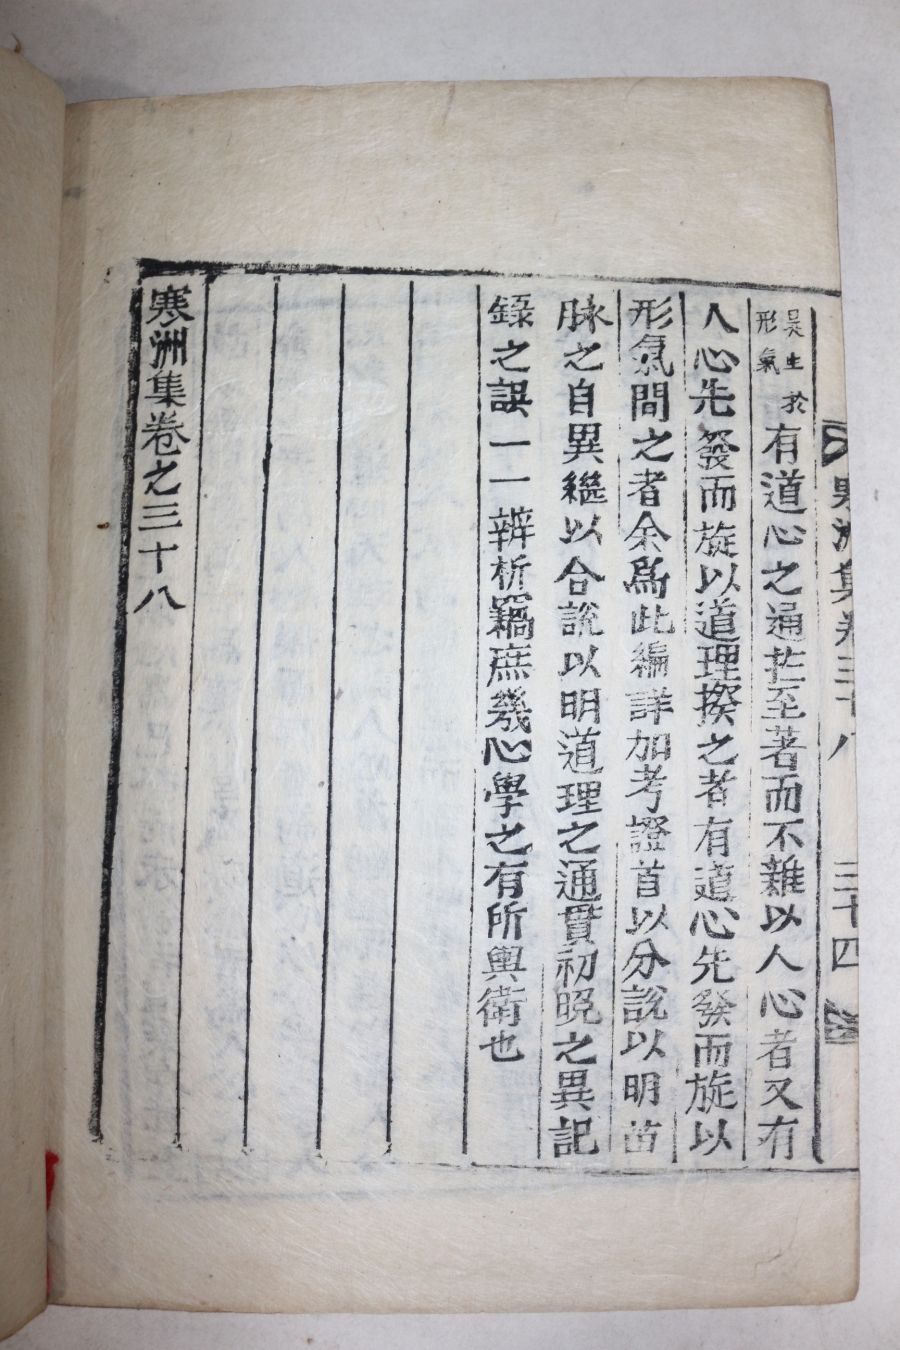 寒洲集卷三十八 三十四
生於
形氣
有道心之通茫至著而不雜以人心者又有
人心先發而旋以道理揆之者有道心先發而旋以
形氣間之者余爲此編詳加考證首以分說以明苗
脉之自異繼以合說以明道理之通貫初晚之異記
錄之誤一一辨析竊庶幾心學之有所輿衛也
寒洲集卷之三十八